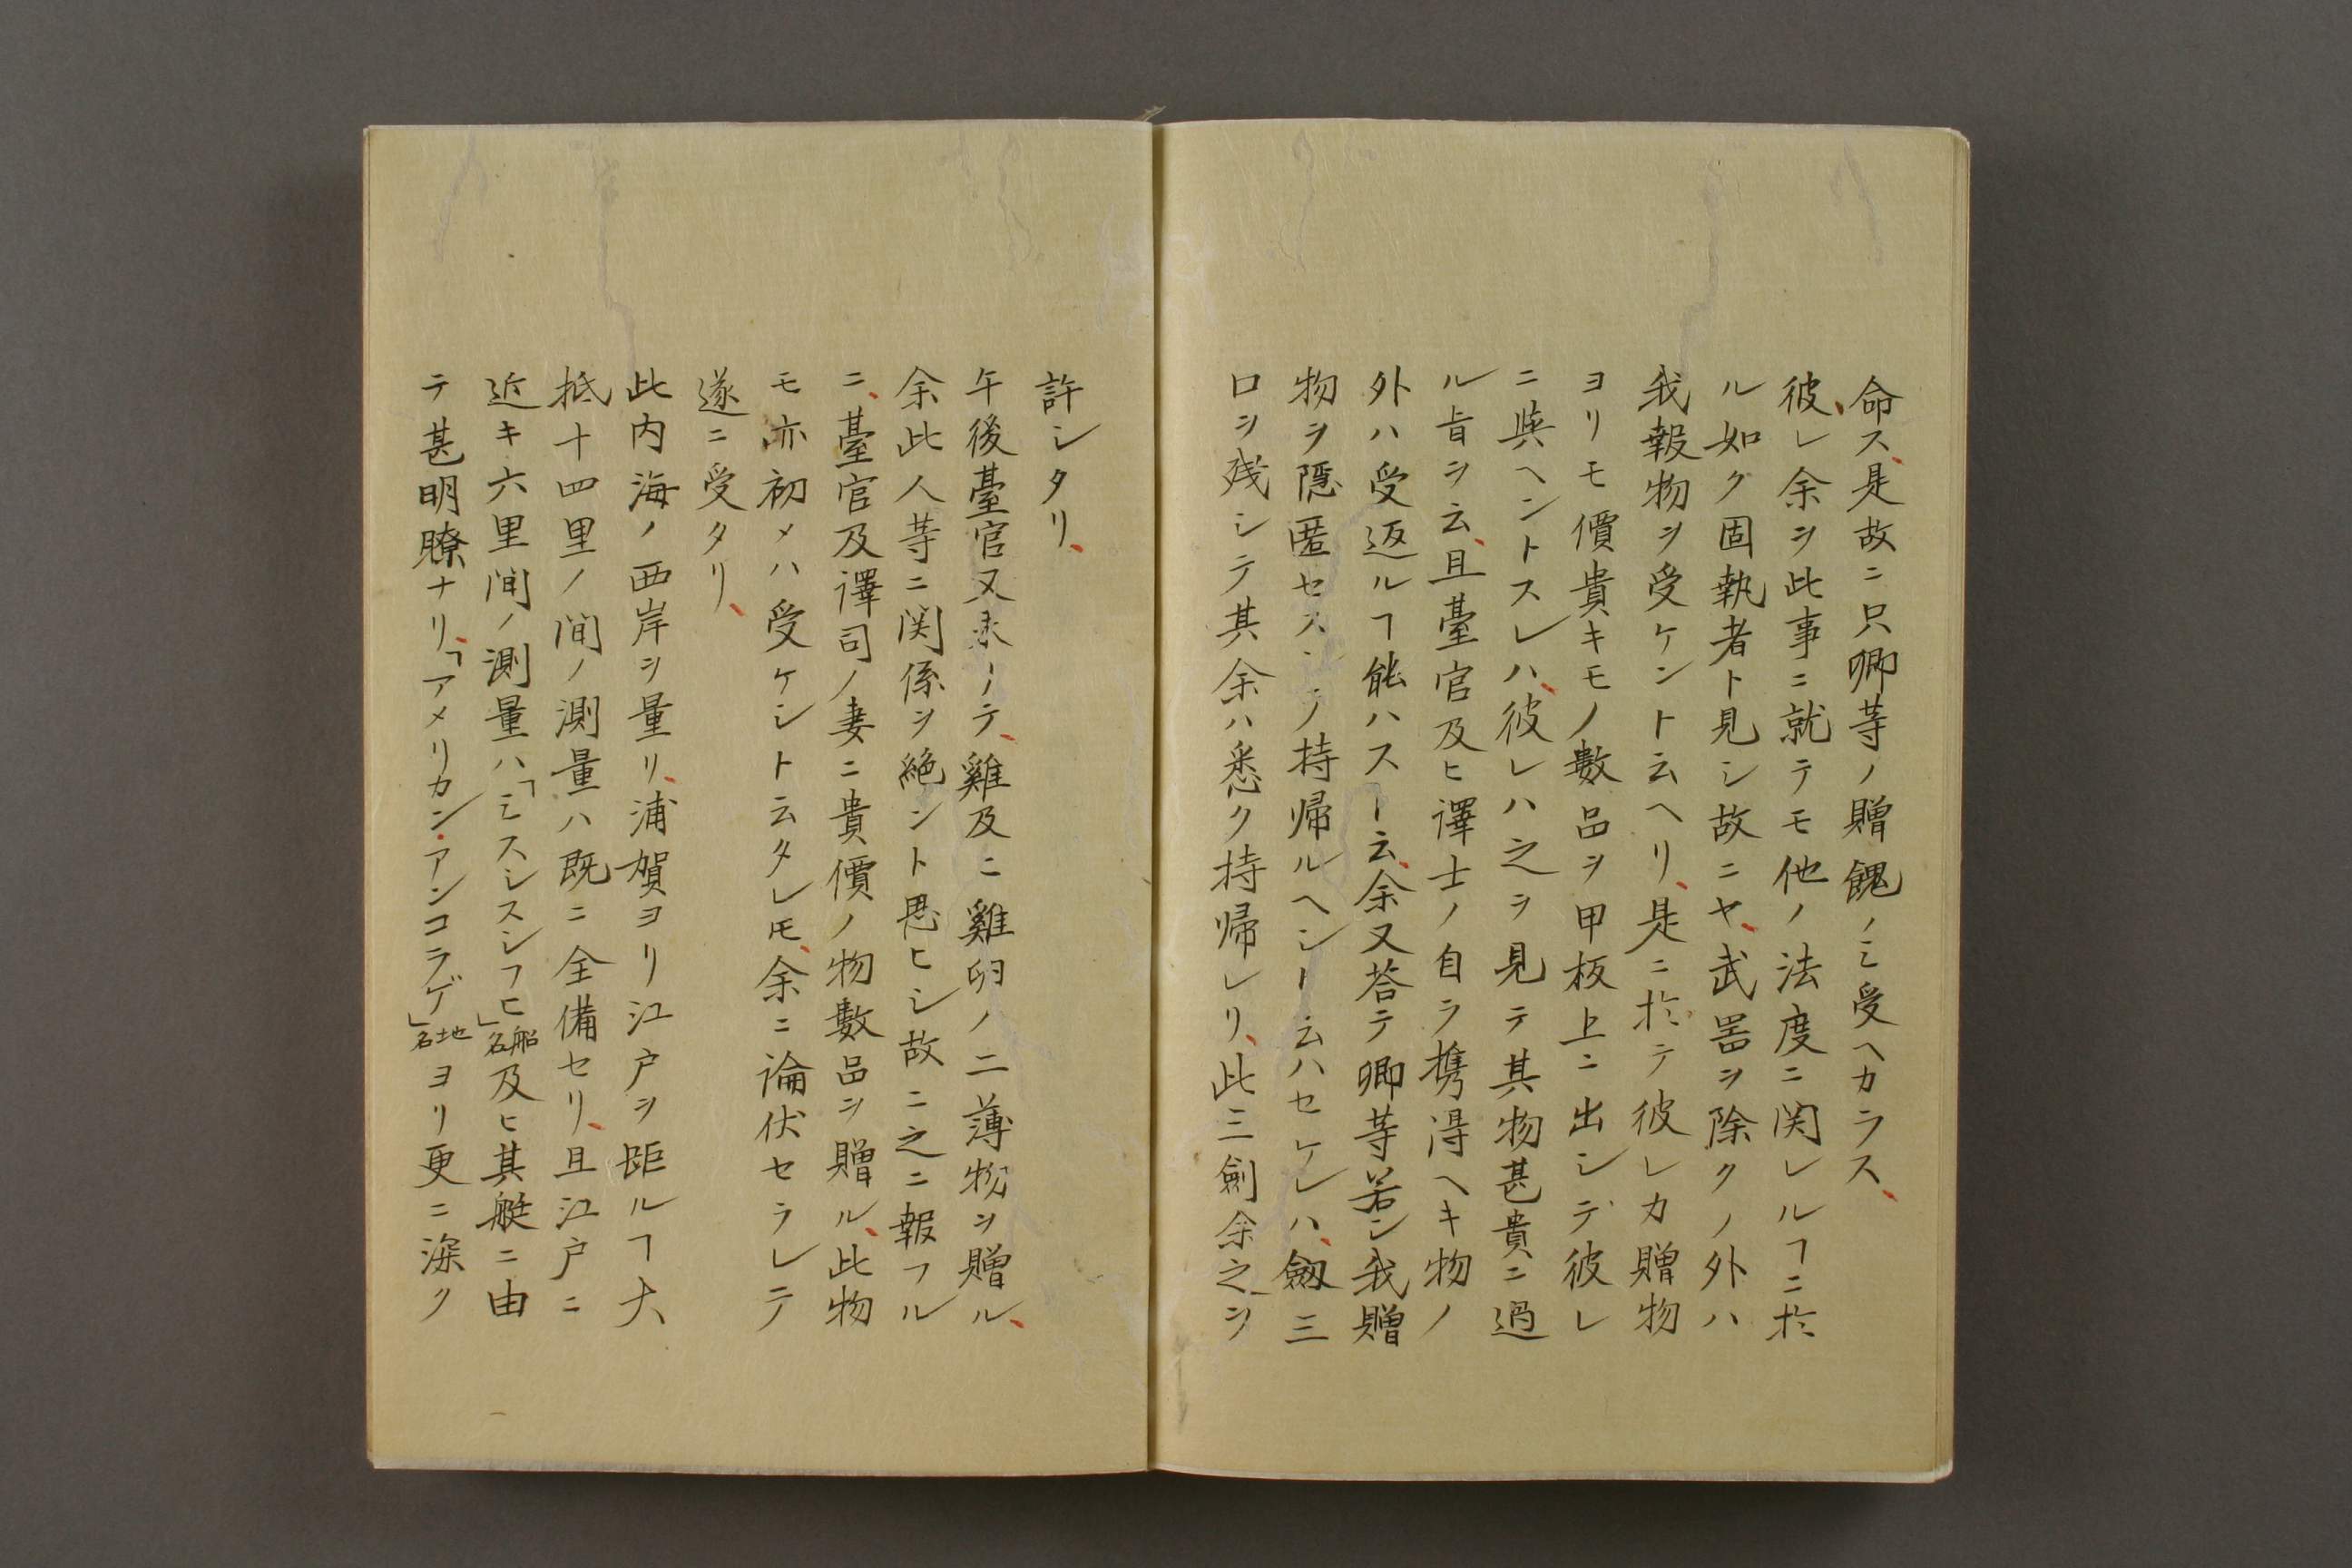 命ス、是故ニ只卿等ノ贈餽ノミ受ヘカラス、
彼レ余ヲ此事ニ就テモ他ノ法度ニ関レルヿニ於
ル如ク固執者ト見シ故ニヤ、武器ヲ除クノ外ハ
我報物ヲ受ケント云ヘリ、是ニ於テ彼レカ贈物
ヨリモ價貴キモノ數品ヲ甲板上ニ出シテ彼レ
ニ與ヘントスレハ、彼レハ之ヲ見テ其物甚貴ニ過
ル旨ヲ云、且臺官及ヒ譯士ノ自ラ携得ヘキ物ノ
外ハ受返ルヿ能ハスト云、余又荅テ卿等若シ我贈
物ヲ隱匿セスシテ持帰ルヘシト云ハセケレハ、劔三
口ヲ残シテ其余ハ悉ク持帰レリ、此三劍余之ヲ
許シタリ、
午後臺官又来リテ、雞及ニ雞卵ノ二薄物ヲ贈ル、
余此人等ニ関係ヲ絶ント思ヒシ故ニ之ニ報フル
ニ、臺官及譯司ノ妻ニ貴價ノ物數品ヲ贈ル、此物
モ亦初メハ受ケシト云タレ𪜈、余ニ論伏セラレテ
遂ニ受タリ、
此内海ノ西岸ヲ量リ、浦賀ヨリ江戸ヲ距ルヿ大
抵十四里ノ間ノ測量ハ既ニ全備セリ、且江戸ニ
近キ六里間ノ測量ハ「ミスシスシフヒ」船名及ヒ其艇ニ由
テ甚明瞭ナリ、「アメリカン・アンコラゲ」地名ヨリ更ニ深ク